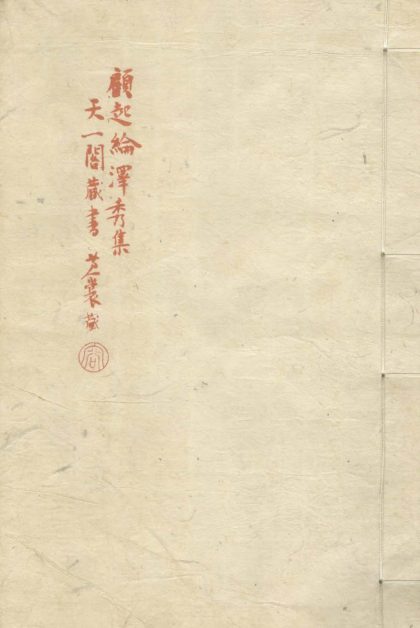 顧起綸澤秀集
天一閣藏書 黃裳藏